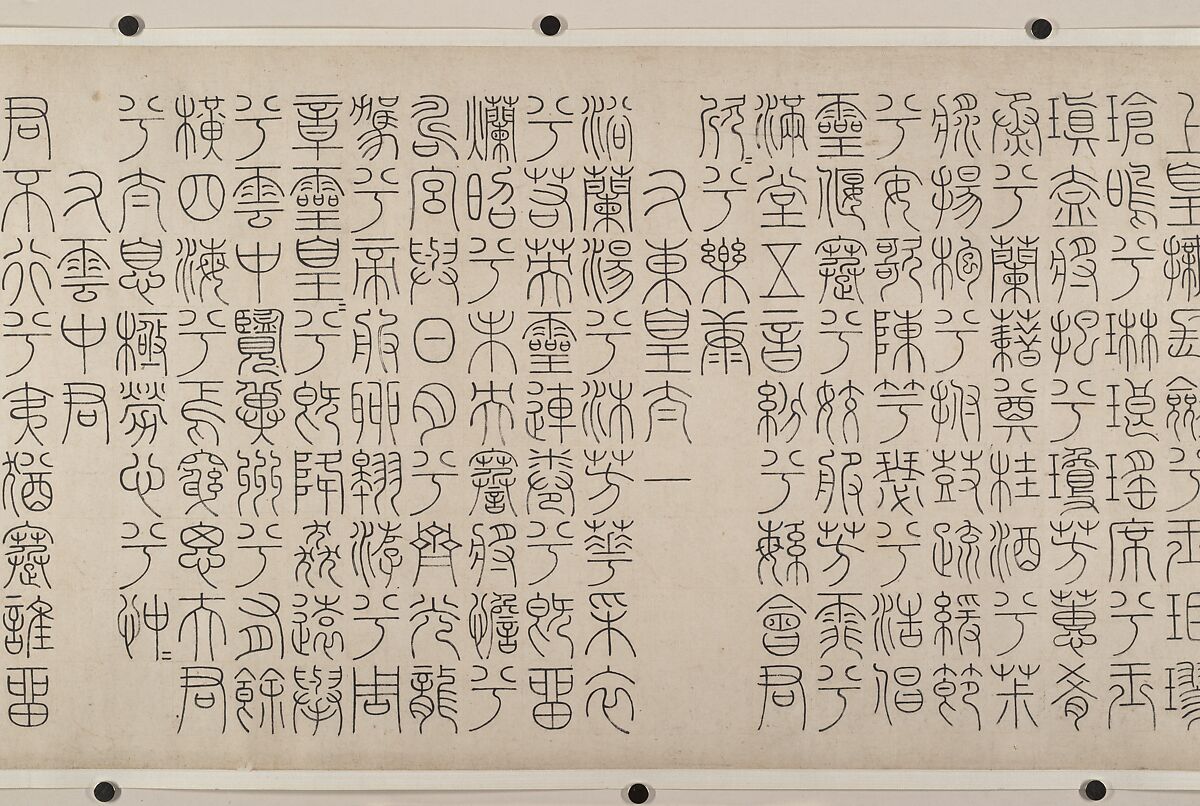 上皇撫長劍兮玉珥璆
瑲鳴兮琳琅瑤席兮玉
瑱盍將把兮瓊芳蕙肴
烝兮蘭藉奠桂酒兮茮
漿揚枹兮拊鼓疏緩節
兮安歌陳竽瑟兮浩倡
靈偃蹇兮姣服芳菲兮
滿堂五音紛兮繁會君
欣=兮樂康
又東皇太一
浴蘭湯兮沐芳華采衣
兮若英靈連蜷兮既留
爛昭兮未央謇將憺兮
壽宮與日月兮齊光龍
駕兮帝服聊翱游兮周
章靈皇=兮既降猋遠舉
兮雲中覽冀州兮有餘
橫四海兮焉窮思夫君
兮太息極勞心兮忡=
又雲中君
君不行兮夷猶蹇誰留